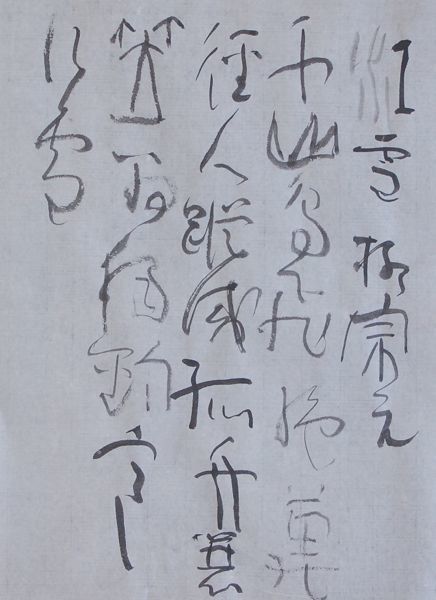 江雪 柳宗元
千山鳥飛絕萬
徑人蹤滅孤舟蓑
笠翁獨釣寒
江雪